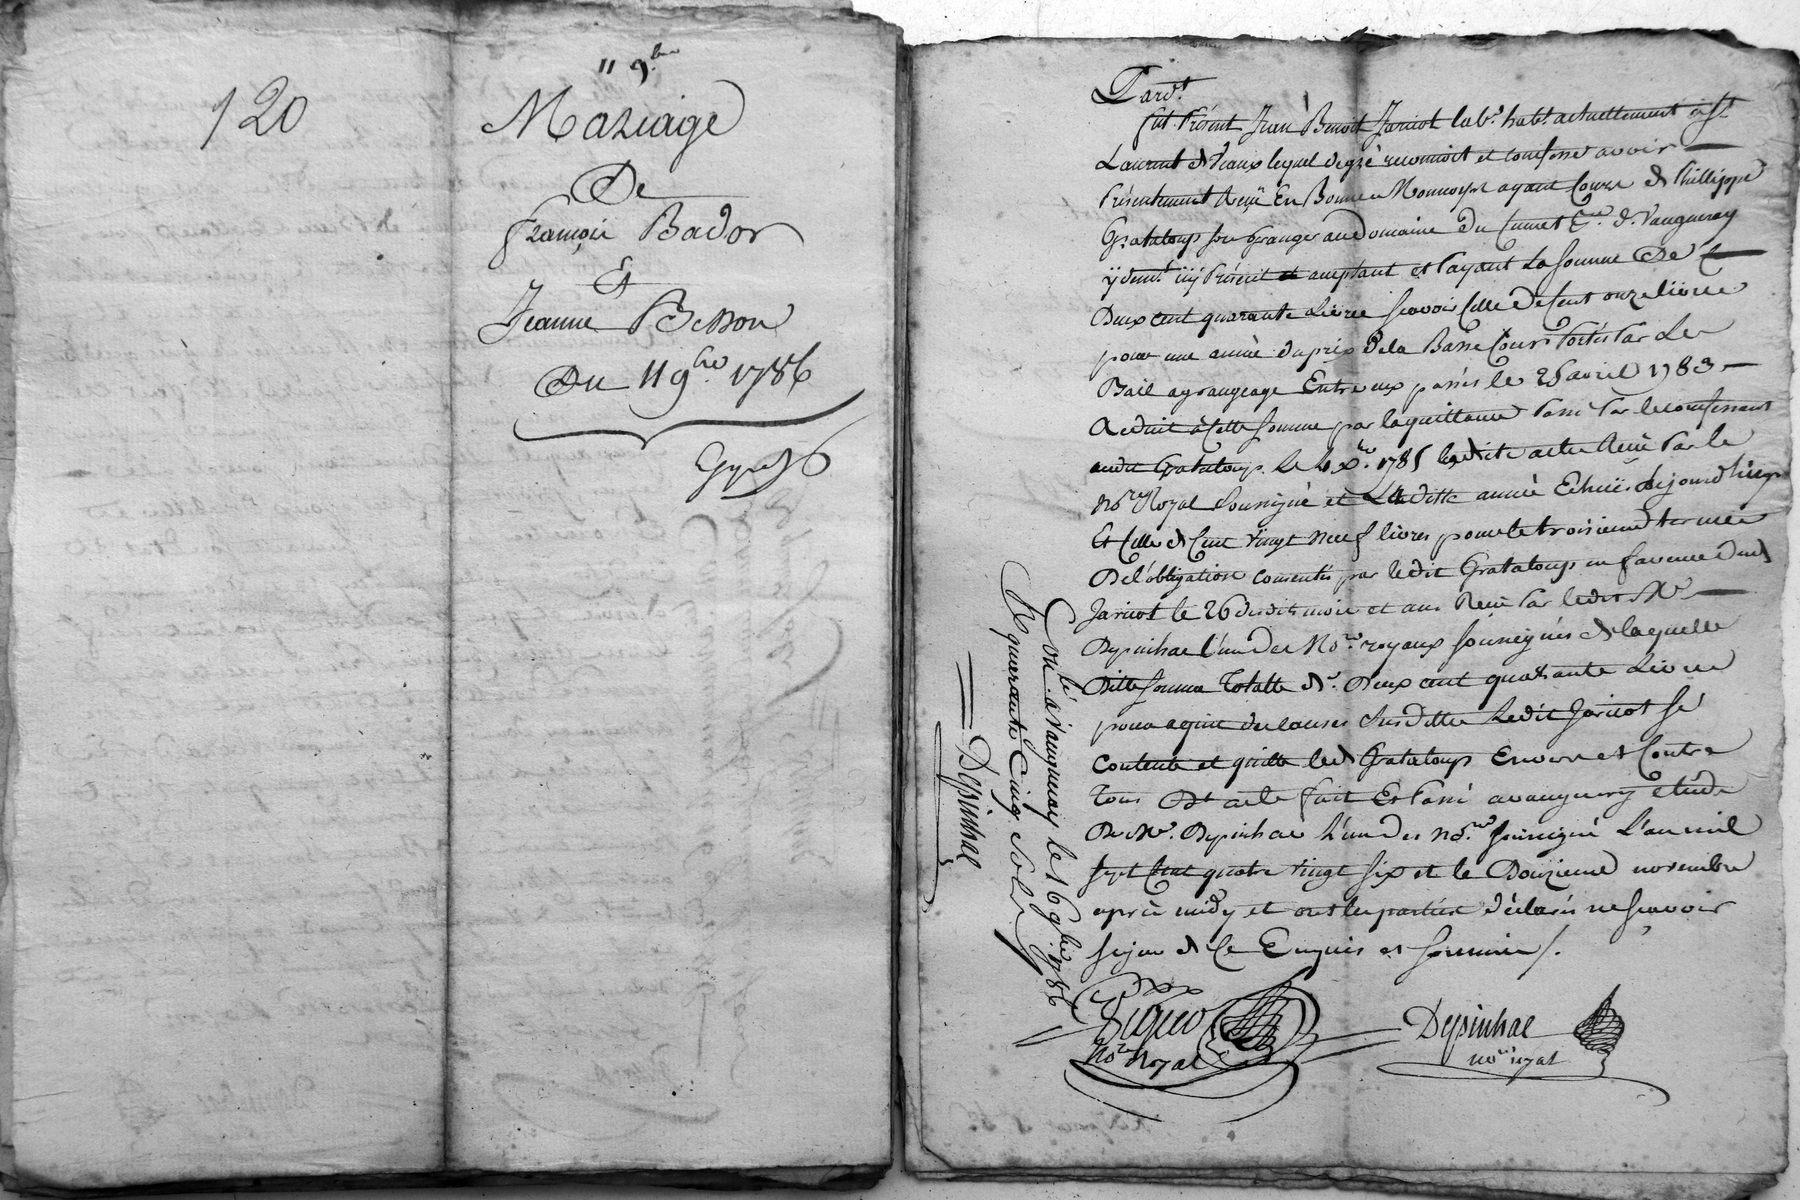 120
11 9.bre
Mariage
De
françois Bador
Et
Jeanne Besson
Du 11 9.bre 1786
Pard.t
fut Présent Jean Benoit Jaricot lab.r hab.t actuellement à St
Laurent de Vaux lequel de gré reconnoit et confesse avoir
Présentement Reçü En Bonne Monnoye ayant Cours de Phillippe
Grataloup son Granger au domaine du de Vaugneray
y dem.t icy Présent et acceptant et Payant La Somme De
Deux cent quarante Livres scavoir Celle de Cent onze livres
pour une année du prix de la Basse Cour Portés Par Le
Bail a grangeage Entre eux passés le 26 avril 1783
Reduit à Cette somme par la quittance Passé Par le confessant
audit Grataloup Le 4 x.bre 1785 lesdits actes Reçü Par le
No.re Royal Soussigné et Laditte année Echuë dejourd'huy
Et Celle de Cent vingt neuf livres pour le troisieme termes
De l'obligation consentis par ledit Grataloup en faveur dud
Jaricot le 26 desdits mois et ans Reçü Par ledit M.e
Depinhac l'un des No.res royaux soussignés de laquelle
Ditte somme Totalle de Deux cent quarante Livres
pour les causes Susdittes Ledit Jaricot se
Contente et quitte led Grataloup Envers et Contre
Tous D.t acte fait Et Passé a vaugneray étude
De M.e Depinhac L'un des No.res soussigné L'an mil
sept Cent quatre vingt six et le Douzieme novembre
après midy et ont les parties déclarés ne scavoir
signer de Ce Enquis et sommés /.
No.re Royal
Depinhac
no.re royal
Con.lé à Vaugneray le 16 9.bre 1786
R quarante Cinq Sols
Depinhac